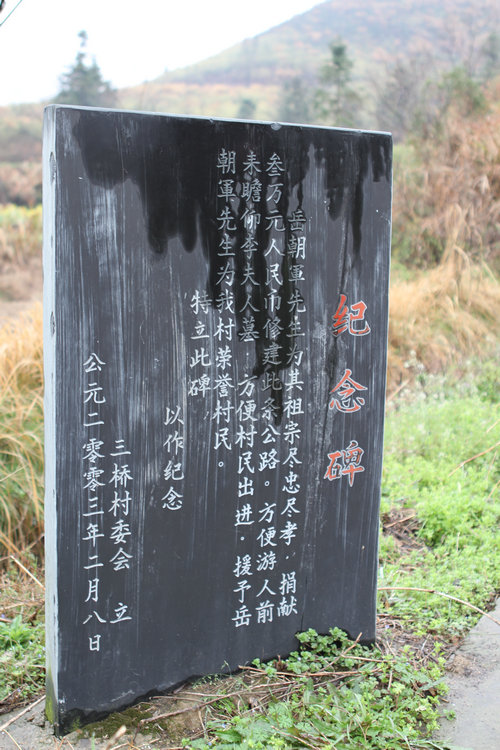 纪念碑
岳朝軍先生为其祖宗尽忠尽孝．捐献
叁万元人民币修建此条公路。方便游人前
来瞻仰李夫人墓．方便村民出进．援予岳
朝軍先生为我村荣誉村民。
特立此碑
以作纪念
三桥村委会 立
公元二零零三年二月八日